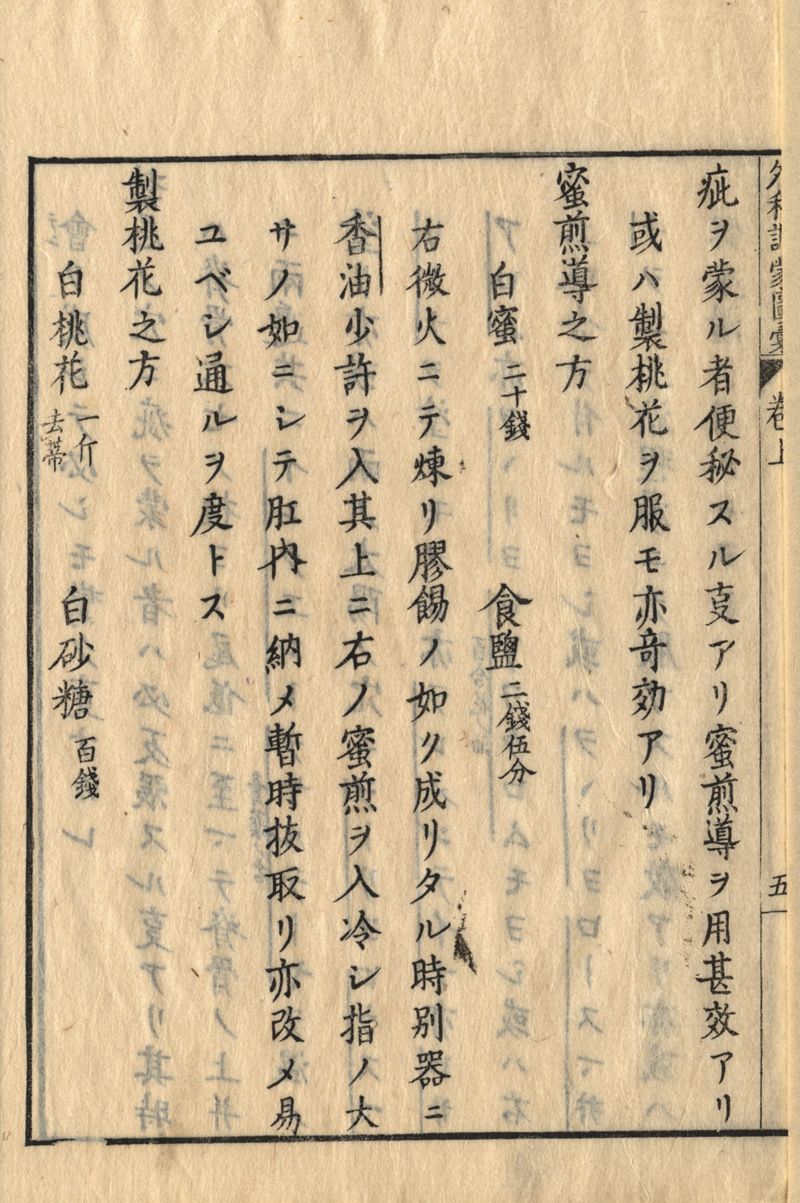 疵ヲ蒙ル者便秘スル𫝆アリ蜜煎導ヲ用甚效アリ
或ハ製桃花ヲ服モ亦竒効アリ
蜜煎導之方
白蜜 二十錢 食鹽 二錢伍分
右微火ニテ煉リ膠餳ノ如ク成リタル時別器ニ
香油少許ヲ入其上ニ右ノ蜜煎ヲ入冷シ指ノ大
サノ如ニシテ肛内ニ納メ暫時抜取リ亦改メ易
ユベシ通ルヲ度トス
製桃花之方
白桃花 一斤 去蒂 白砂糖 百錢
卷上
五